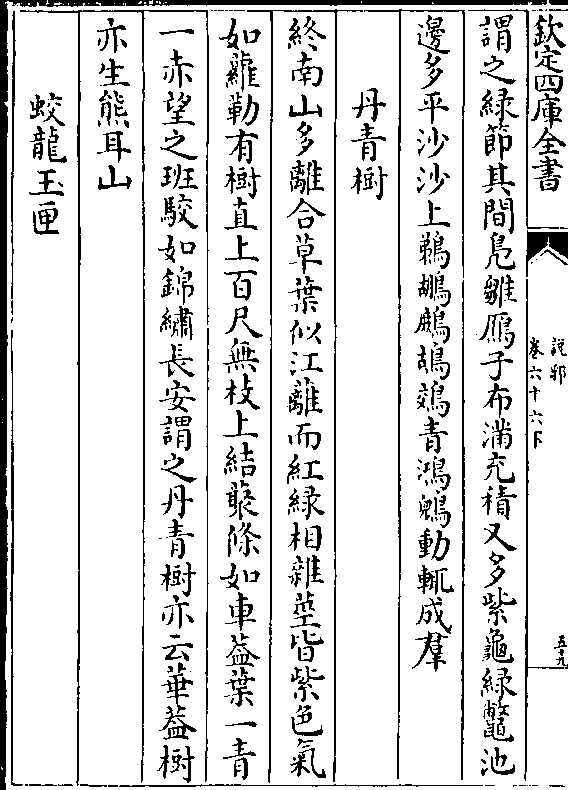 欽定四庫全書
說郛
卷六十六下
五十九
謂之緑節其間鳬雛鴈子布滿充積又多紫龜緑鼈池
邊多平沙沙上鵜鶘鷓鴣鵁青鴻鶃動輒成羣
丹青樹
終南山多離合草葉似江蘺而紅緑相雜莖皆紫色氣
如蘿勒有樹直上百尺無枝上結藂條如車葢葉一青
一赤望之班駮如錦繡長安謂之丹青樹亦云華葢樹
亦生熊耳山
蛟龍玉匣